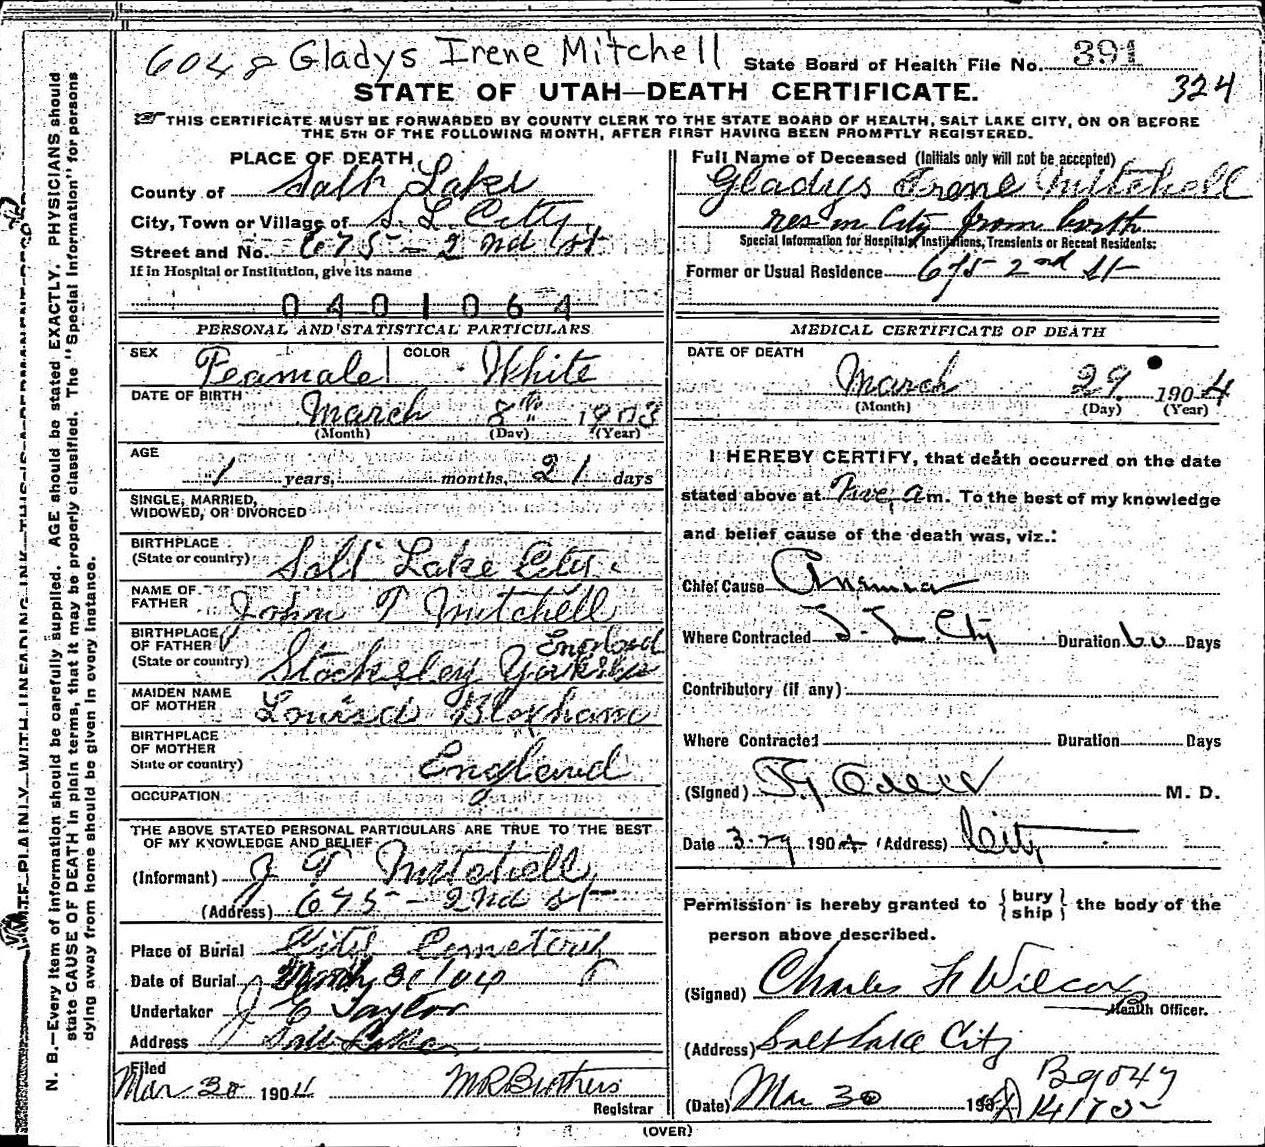 6048 Gladys Irene Mitchell State Board of Health File No. 391
324
STATE OF UTAH—DEATH CERTIFICATE.
THIS CERTIFICATE MUST BE FORWARDED BY COUNTY CLERK TO THE STATE BOARD OF HEALTH, SALT LAKE CITY, ON OR BEFORE
THE 5TH OF THE FOLLOWING MONTH, AFTER FIRST HAVING BEEN PROMPTLY REGISTERED.
PLACE OF DEATH
County of Salt Lake
City, Town or Village of S. L. City
Street and No. 675 - 2nd St
If in Hospital or Institution, give its name
0401064
Full Name of Deceased (Initials only will not be accepted)
Gladys Irene Mitchell
res in City from birth
Special Information for Hospitals, Institutions, Transients or Recent Residents:
Former or Usual Residence 675 2nd St
PERSONAL AND STATISTICAL PARTICULARS
SEX Feamale COLOR White
DATE OF BIRTH
March 8th 1903
(Month) (Day) (Year)
AGE
1 years, months, 21 days
SINGLE, MARRIED,
WIDOWED, OR DIVORCED
BIRTHPLACE
(State or country) Salt Lake City
NAME OF
FATHER John T Mitchell
BIRTHPLACE
OF FATHER England
(State or country) Stockesley Yorkshire
MAIDEN NAME
OF MOTHER Louisa Bloxham
BIRTHPLACE
OF MOTHER
State or country) England
OCCUPATION
THE ABOVE STATED PERSONAL PARTICULARS ARE TRUE TO THE BEST
OF MY KNOWLEDGE AND BELIEF
(Informant) J T Mitchell
(Address) 675 - 2nd St
Place of Burial City Cemetery
Date of Burial March 30 1904
Undertaker J E Taylor
Address Salt Lake
Filed
Mar 30 1904 M R Brothers
Registrar
MEDICAL CERTIFICATE OF DEATH
DATE OF DEATH
March 29 1904
(Month) (Day) (Year)
I HEREBY CERTIFY, that death occurred on the date
stated above at Five a m. To the best of my knowledge
and belief cause of the death was, viz.:
Chief Cause Anaemia
Where Contracted S. L. City Duration 60 Days
Contributory (if any)
Where Contracted Duration Days
(Signed) M. D.
Date 3-29 1904 (Address) City
Permission is hereby granted to { bury
ship } the body of the
person above described.
(Signed) Charles F Wilcox
Health Officer.
(Address) Salt Lake City
(Date) Mar 30 190
(OVER)
N. B.—Every item of information should be carefully supplied. AGE should be stated EXACTLY. PHYSICIANS should
state CAUSE OF DEATH in plain terms, that it may be properly classified. The "Special Information" for persons
dying away from home should be given in every instance.